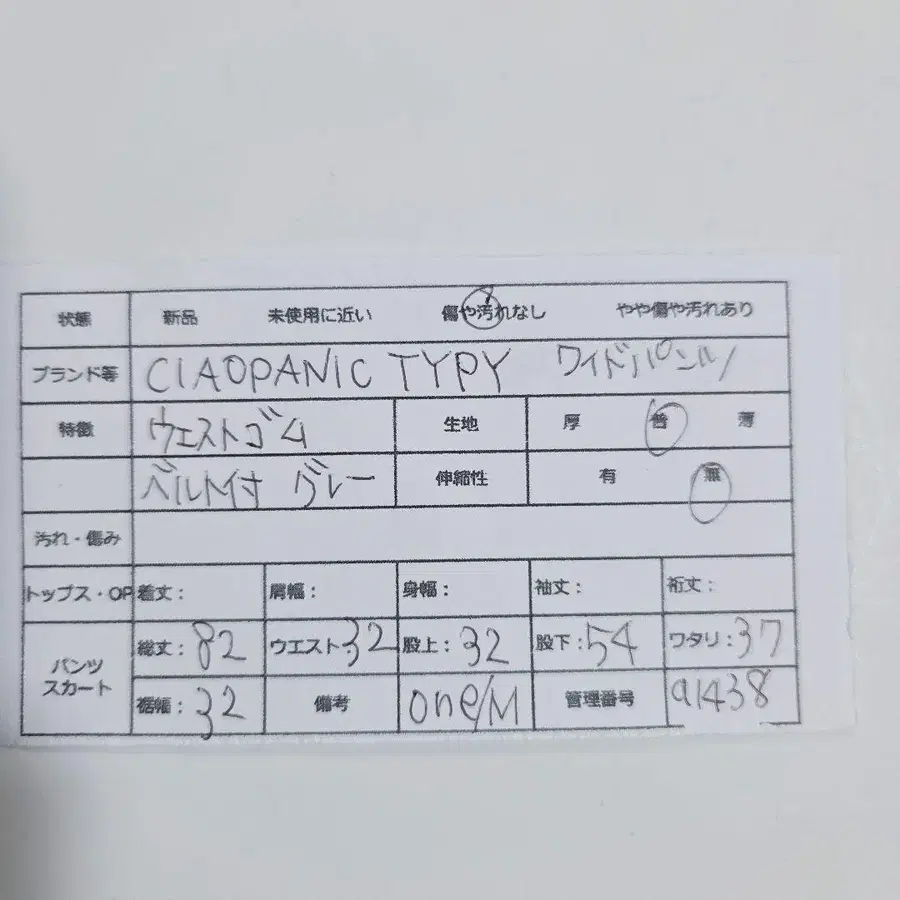 状態 新品 未使用に近い 傷や汚れなし やや傷や汚れあり
ブランド等 CIAOPANIC TYPY ワイドパンツ
特徴 ウエストゴム 生地 厚 普 薄
ベルト付 グレー 伸縮性 有 無
汚れ・傷み
トップス・OP 着丈: 肩幅: 身幅: 袖丈: 裄丈:
パンツ スカート 総丈:82 ウエスト32 股上:32 股下:54 ワタリ:37
裾幅:32 備考 one/M 管理番号 a1438